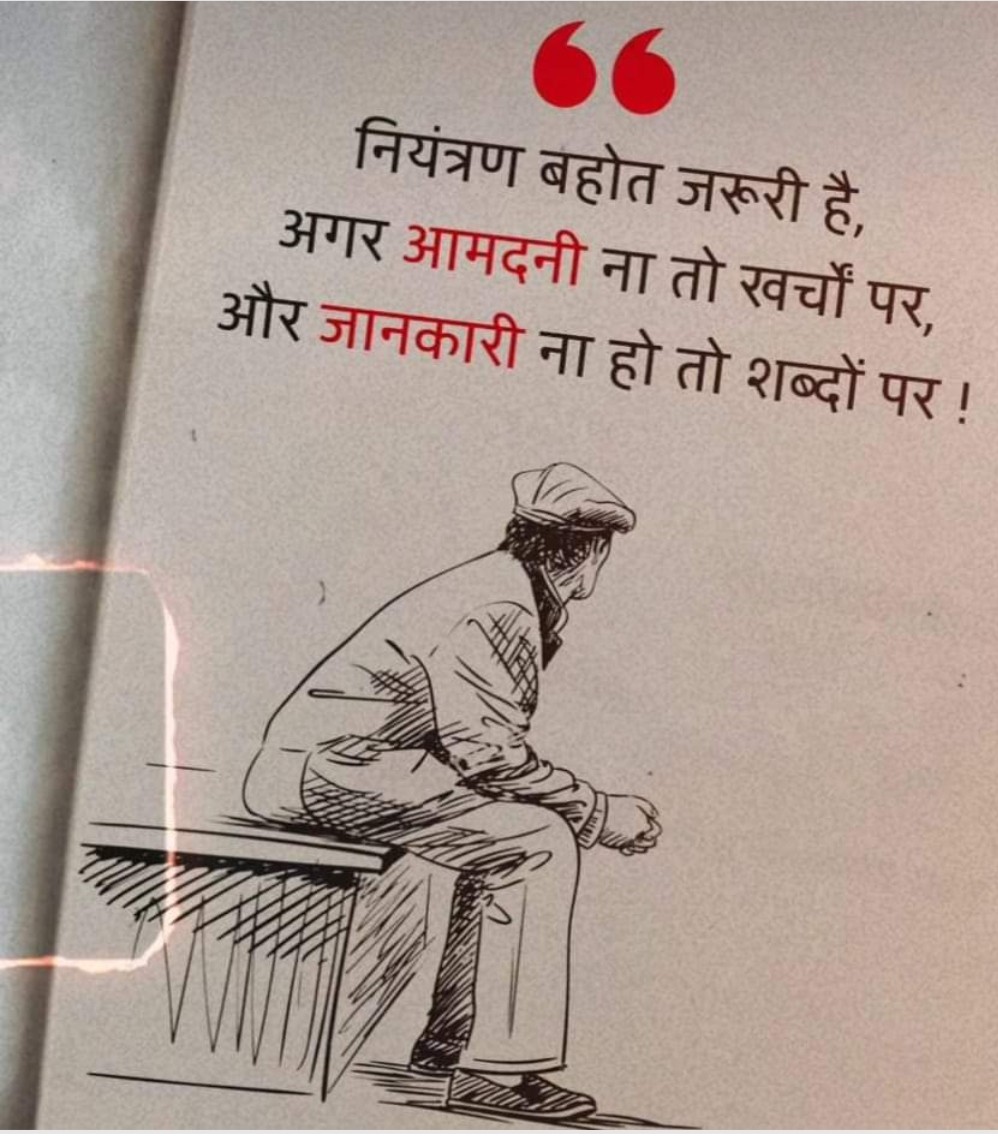 नियंत्रण बहोत जरूरी है,
अगर आमदनी ना तो खर्चों पर,
और जानकारी ना हो तो शब्दों पर !